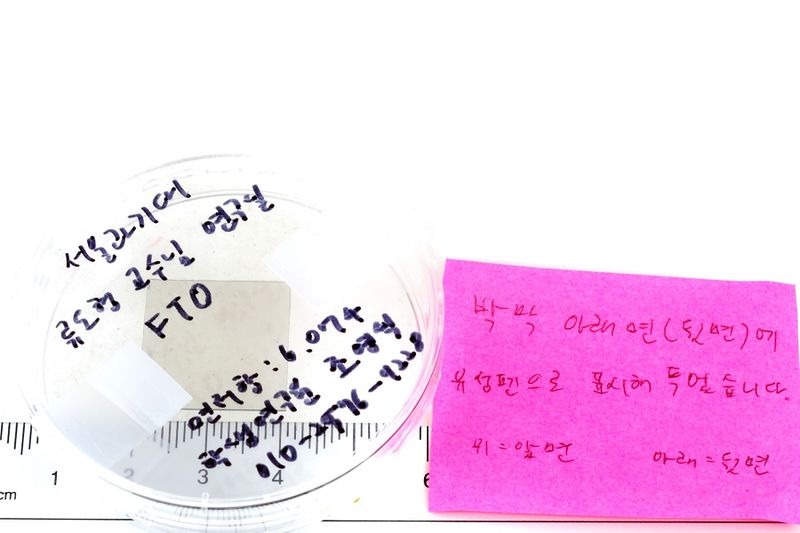 서울과기대
류도형 교수님 연구실
FTO
면저항: 6.074
학생연구원 조영식
010-2576-9228
박막 아래면(뒷면)에
유성펜으로 표시해 두었습니다.
위=앞면 아래=뒷면
cm 1 2 3 4 6